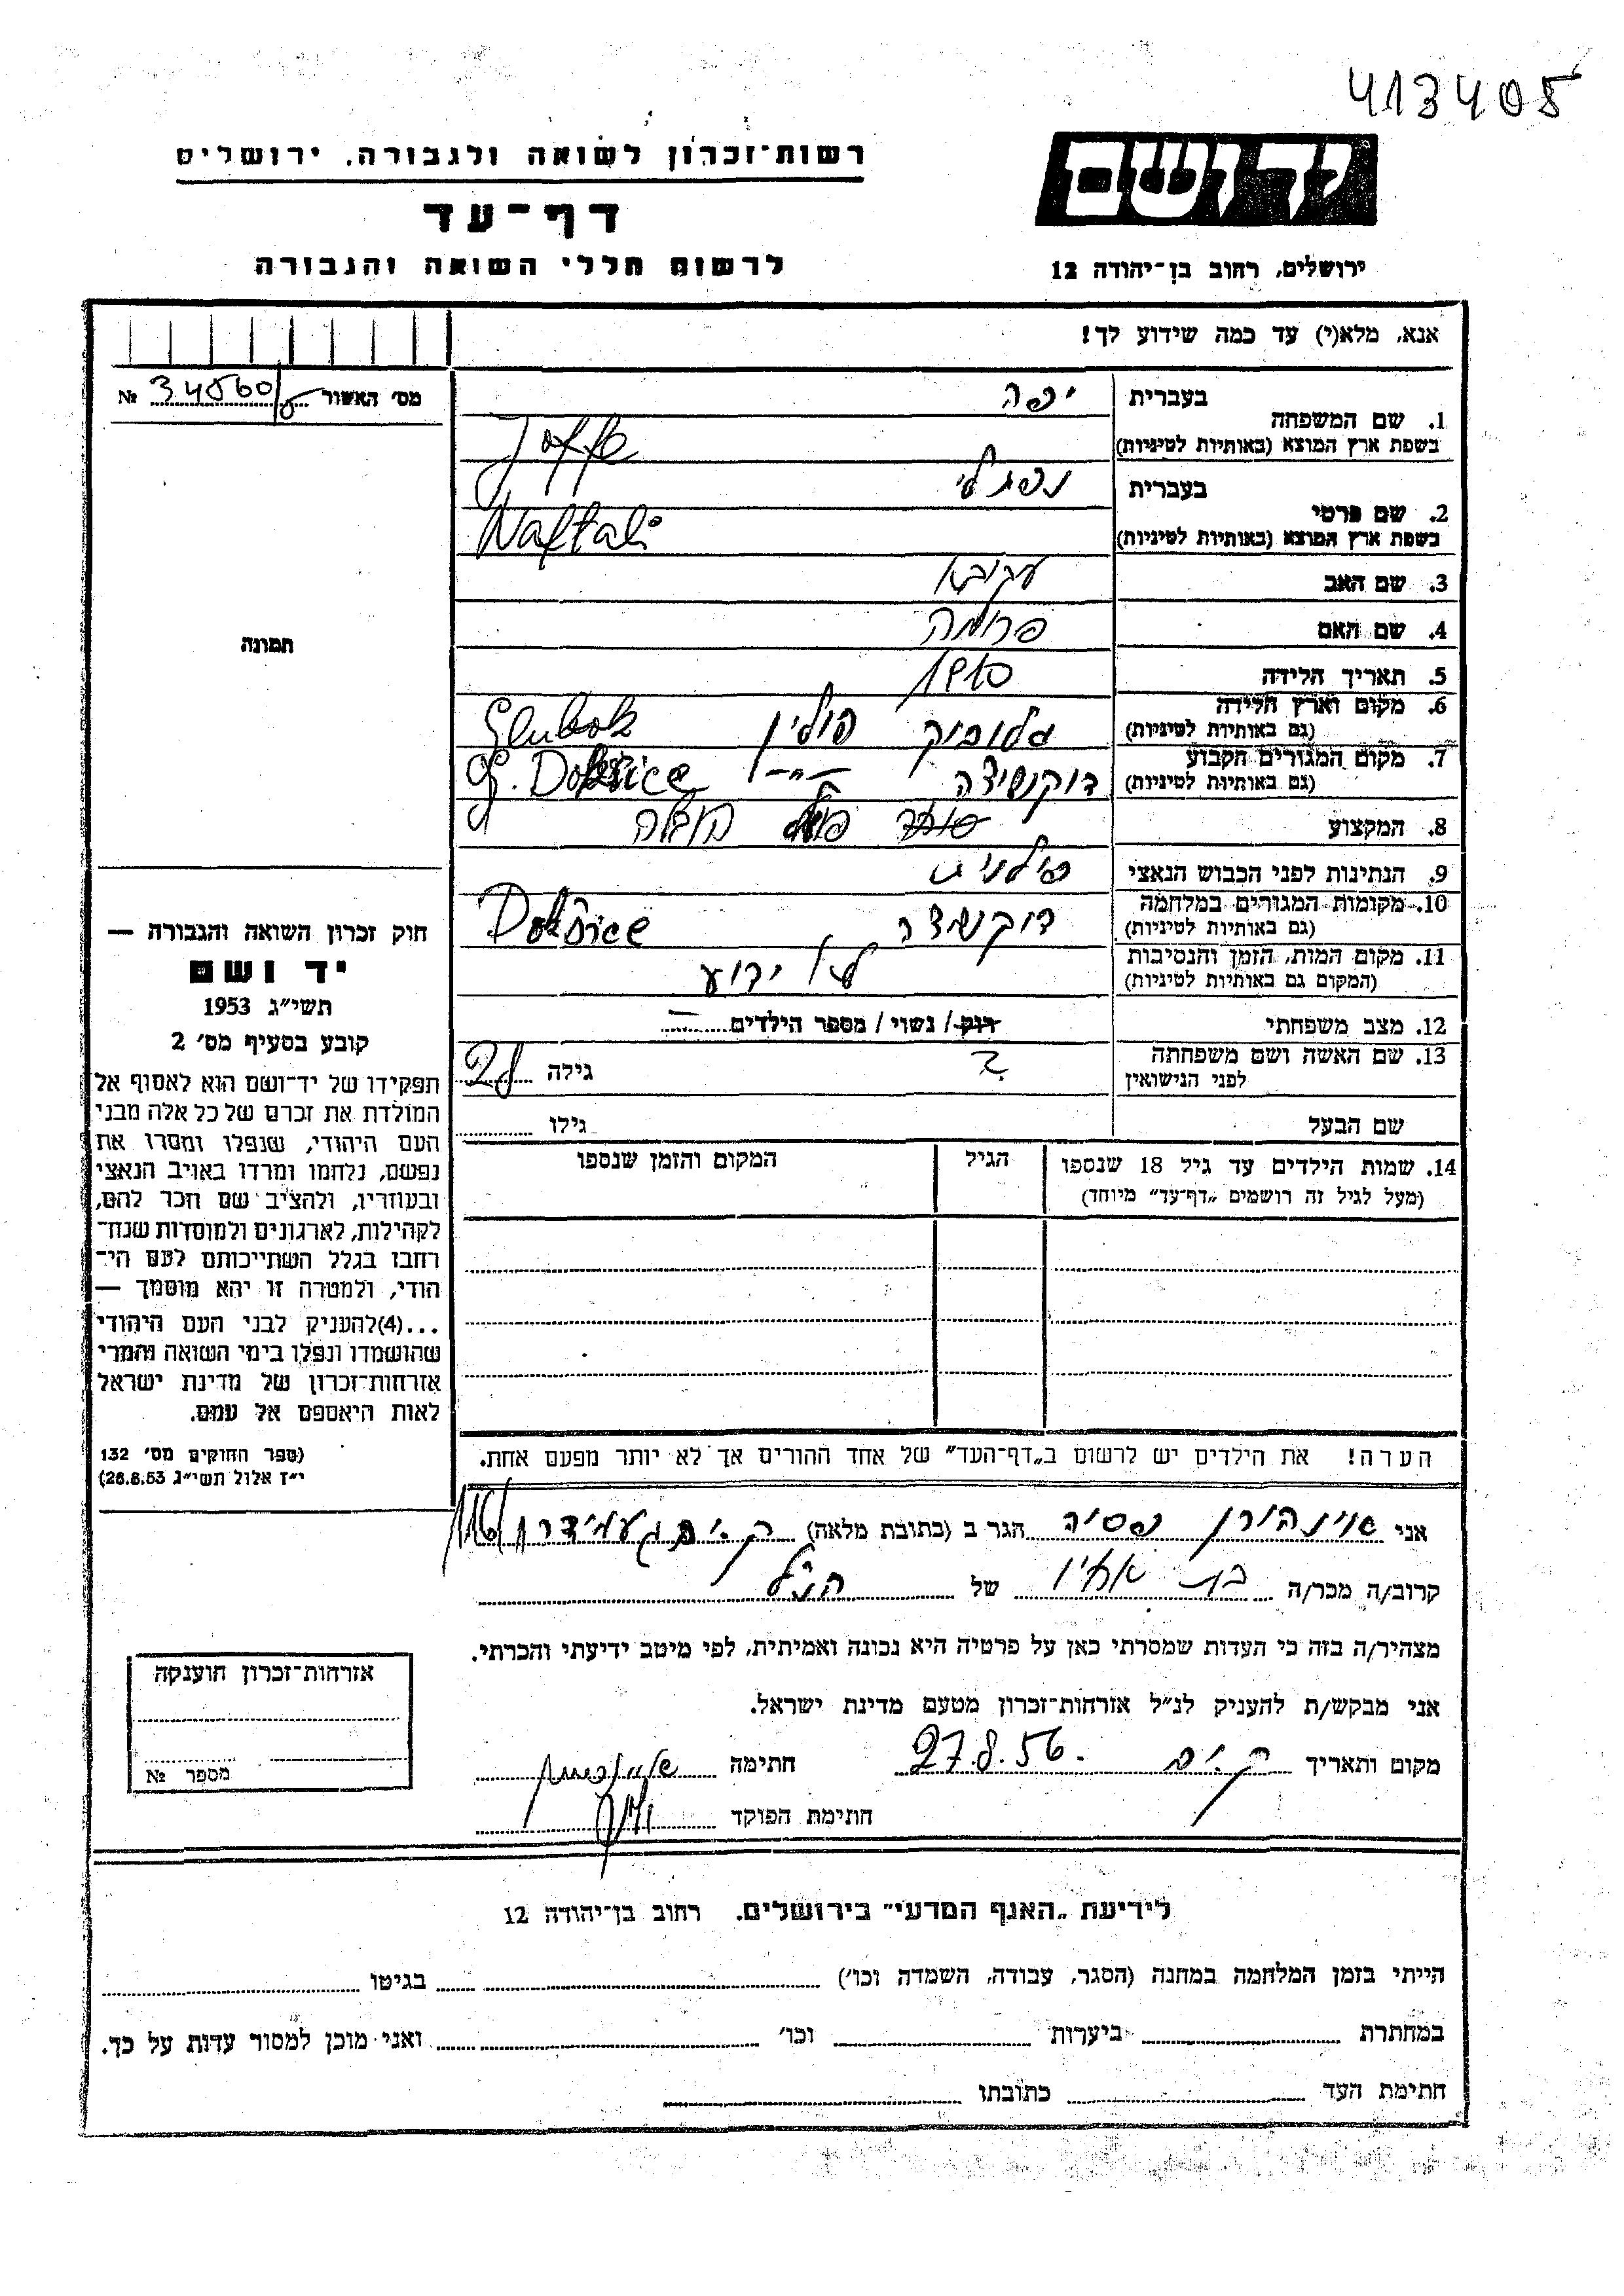 413405
רשות־זכרון לשואה ולגבורה, ירושלים
יד ושם
דף־עד
לרשום חללי השואה והגבורה
ירושלים, רחוב בן־יהודה 12
אנא, מלא(י) עד כמה שידוע לך!
מס׳ האשור № 34560/
1. שם המשפחה
בעברית יפה
בשפת ארץ המוצא (באותיות לטיניות) Joffe
2. שם פרטי
בעברית נפתלי
בשפת ארץ המוצא (באותיות לטיניות) Naftali
3. שם האב עקיבא
4. שם האם פרומה
5. תאריך הלידה 1910
6. מקום וארץ הלידה גלובוק פולין Glubok
(גם באותיות לטיניות)
7. מקום המגורים הקבוע דוקשיצה –"– g. Dokšice
(גם באותיות לטיניות)
8. המקצוע סוחר
9. הנתינות לפני הכבוש הנאצי פולנית
10. מקומות המגורים במלחמה דוקשיצה Dokšice
(גם באותיות לטיניות)
11. מקום המות, הזמן והנסיבות לא ידוע
(המקום גם באותיות לטיניות)
12. מצב משפחתי רוק / נשוי / מספר הילדים –
13. שם האשה ושם משפחתה ? גילה 28
לפני הנישואין
שם הבעל גילו
14. שמות הילדים עד גיל 18 שנספו הגיל המקום והזמן שנספו
(מעל לגיל זה רושמים „דף־עד״ מיוחד)
הערה! את הילדים יש לרשום ב„דף־העד״ של אחד ההורים אך לא יותר מפעם אחת.
תמונה
חוק זכרון השואה והגבורה —
יד ושם
תשי״ג 1953
קובע בסעיף מס׳ 2
תפקידו של יד־ושם הוא לאסוף אל
המולדת את זכרם של כל אלה מבני
העם היהודי, שנפלו ומסרו את
נפשם, נלחמו ומרדו באויב הנאצי
ובעוזריו, ולהציב שם וזכר להם,
לקהילות, לארגונים ולמוסדות שנח־
רחבו בגלל השתייכותם לעם הי־
הודי, ולמטרה זו יהא מוסמך —
...(4)להעניק לבני העם היהודי
שהושמדו ונפלו בימי השואה והמרי
אזרחות־זכרון של מדינת ישראל
לאות היאספם אל עמם.
(ספר החוקים מס׳ 132
י״ז אלול תשי״ג 28.8.53)
אני הגר ב (כתובת מלאה) ק.ים עמידר 116/
קרוב/ה מכר/ה בת אחיו של הנ"ל
מצהיר/ה בזה כי העדות שמסרתי כאן על פרטיה היא נכונה ואמיתית, לפי מיטב ידיעתי והכרתי.
אני מבקש/ת להעניק לנ״ל אזרחות־זכרון מטעם מדינת ישראל.
מקום ותאריך ק.ים 27.8.56. חתימה
חתימת הפוקד
אזרחות־זכרון הוענקה
מספר №
לידיעת „האגף המדעי״ בירושלים. רחוב בן־יהודה 12
הייתי בזמן המלחמה במחנה (הסגר, עבודה, השמדה וכו׳) בגיטו
במחתרת ביערות וכו׳ ואני מוכן למסור עדות על כך.
חתימת העד כתובתו